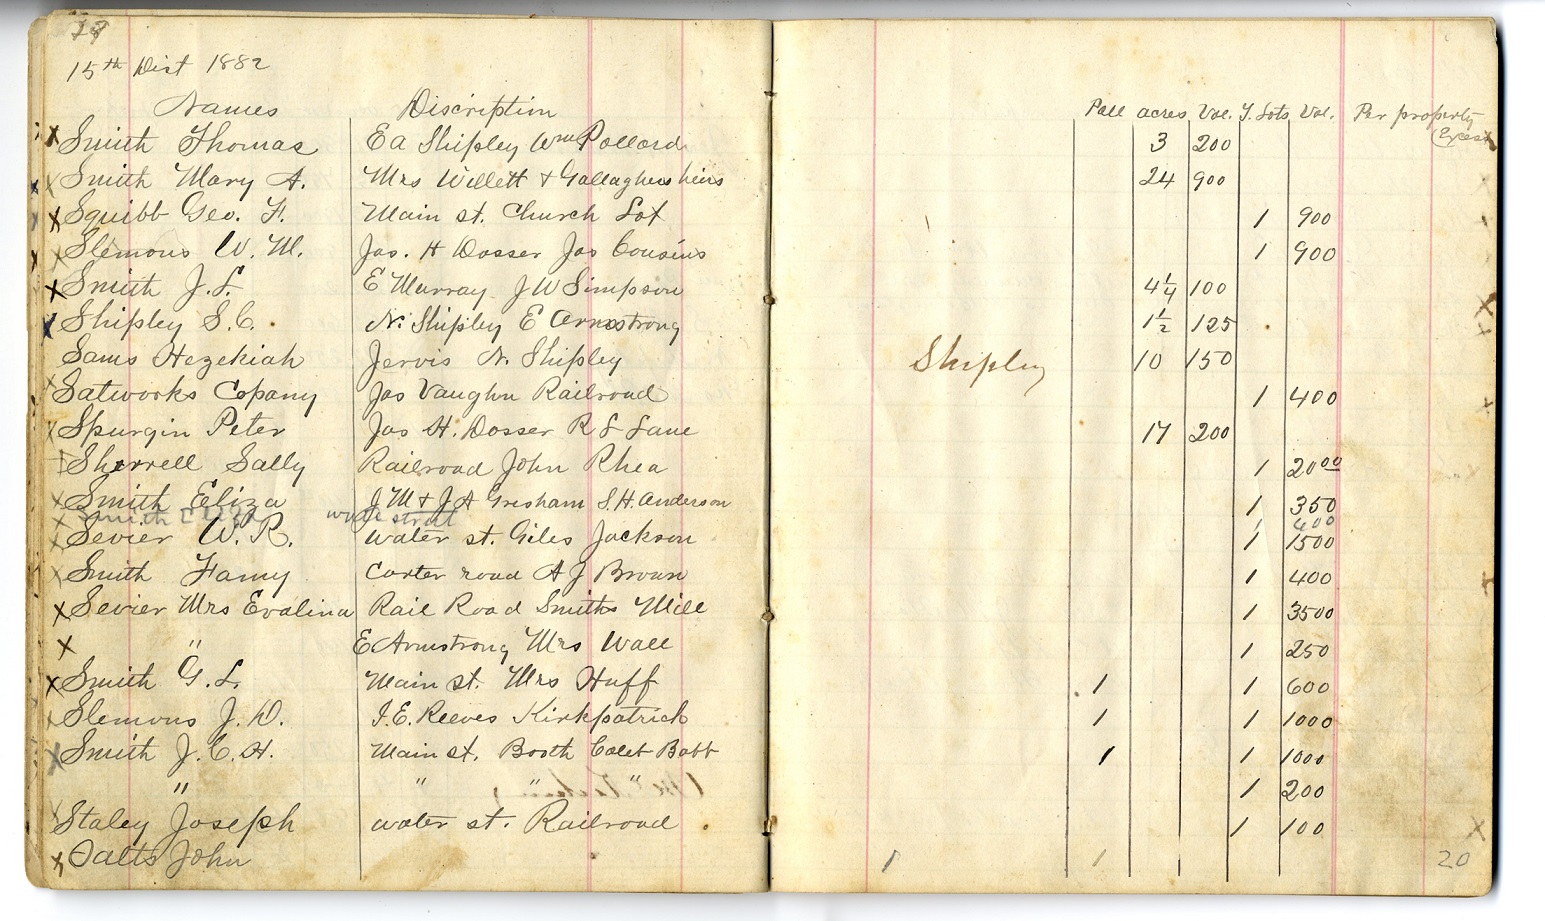 15th Dist 1882
Names Discription Poll acres Val. T. Lots Val. Per property
Smith Thomas Ea Shipley Wm Pollard 3 200
Smith Mary A. Mrs Willett & Gallaghers heirs 24 900
Squibb Geo. F. Main st. Church Lot 1 900
Slemons W. M. Jas. H Dosser Jas Cousins 1 900
Smith J. L. E Murray J W Simpson 4 1/4 100
Shipley S. C. N. Shipley E Armstrong 1 1/2 125
Sams Hezekiah Jervis N. Shipley Shipley 10 150
Satworks Copany Jas Vaughn Railroad 1 400
Spurgin Peter Jas H. Dosser R L Lane 17 200
Sherrell Sally Railroad John Rhea 1 2000
Smith Eliza J M & J A Gresham S. H. Anderson 1 350
Smith Eliza street 1 400
Sevier W. R. Water st. Giles Jackson 1 1500
Smith Fanny Carter road A J Brown 1 400
Sevier Mrs Evalina Rail Road Smiths Mill 1 3500
" E Armstrong Mrs Wall 1 250
Smith G. L. Main st. Mrs Huff 1 1 600
Slemons J. D. I. E. Reeves Kirkpatrick 1 1 1000
Smith J. C. H. Main st. Booth Calet Babb 1 1 1000
" " " " 1 200
Staley Joseph water st. Railroad 1 100
Salts John 1 1
20